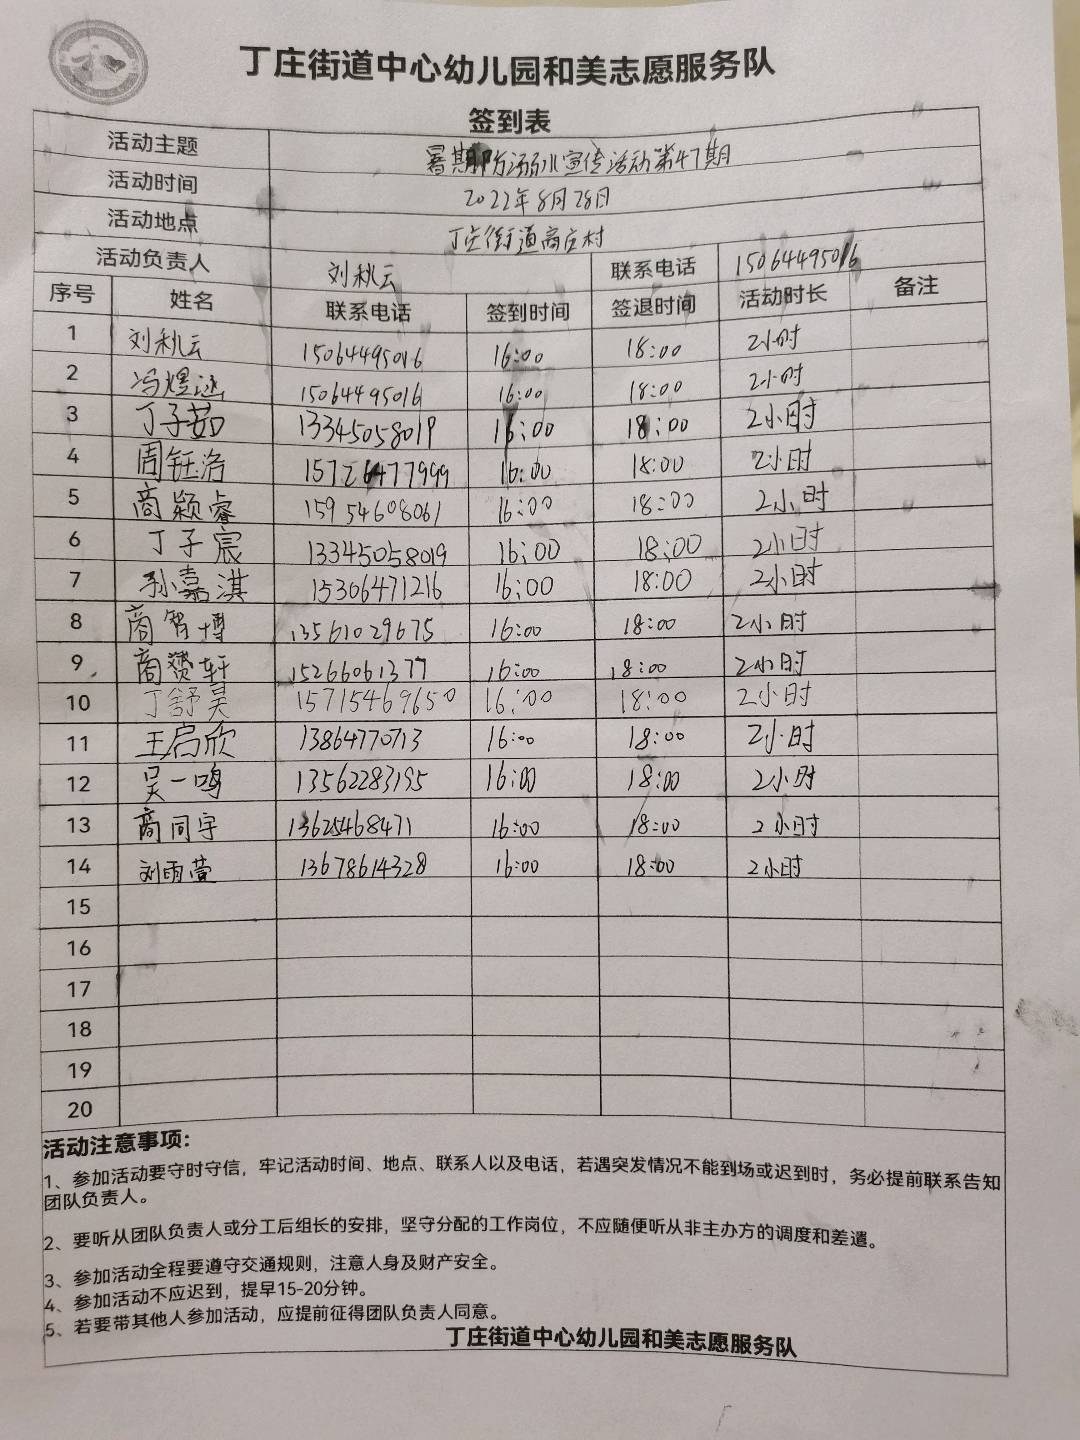 丁庄街道中心幼儿园和美志愿服务队
签到表
活动主题 暑期防溺水宣传活动第47期
活动时间 2022年8月28日
活动地点 丁庄街道商庄村
活动负责人 刘秋云 联系电话 15064495016
序号 姓名 联系电话 签到时间 签退时间 活动时长 备注
1 刘秋云 15064495016 16:00 18:00 2小时
2 冯煜涵 15064495016 16:00 18:00 2小时
3 丁子茹 13345058019 16:00 18:00 2小时
4 周钰洛 15726477999 16:00 18:00 2小时
5 商颖睿 15954608061 16:00 18:00 2小时
6 丁子宸 13345058019 16:00 18:00 2小时
7 孙嘉淇 15306471216 16:00 18:00 2小时
8 商智博 13561029675 16:00 18:00 2小时
9 商赟轩 15266061377 16:00 18:00 2小时
10 丁舒昊 15715469650 16:00 18:00 2小时
11 王启欣 13864770713 16:00 18:00 2小时
12 吴一鸣 13562283195 16:00 18:00 2小时
13 商同宇 13625468471 16:00 18:00 2小时
14 刘雨萱 13678614328 16:00 18:00 2小时
15
16
17
18
19
20
活动注意事项:
1、参加活动要守时守信，牢记活动时间、地点、联系人以及电话，若遇突发情况不能到场或迟到时，务必提前联系告知
团队负责人。
2、要听从团队负责人或分工后组长的安排，坚守分配的工作岗位，不应随便听从非主办方的调度和差遣。
3、参加活动全程要遵守交通规则，注意人身及财产安全。
4、参加活动不应迟到，提早15-20分钟。
5、若要带其他人参加活动，应提前征得团队负责人同意。
丁庄街道中心幼儿园和美志愿服务队